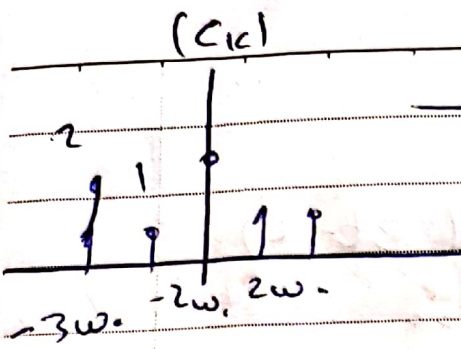 (C_K)
2
1
-3ω₀ -2ω₀ 2ω₀